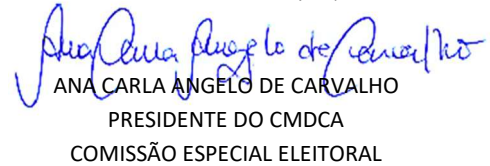 Ana Carla Angelo de Carvalho
ANA CARLA ANGELO DE CARVALHO
PRESIDENTE DO CMDCA
COMISSÃO ESPECIAL ELEITORAL